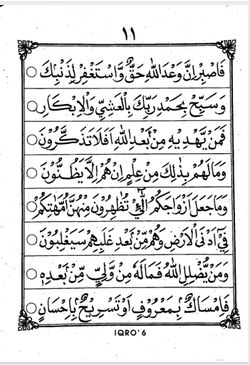 ١١
فَاصْبِرْ اِنَّ وَعْدَ اللّٰهِ حَقٌّ وَّاسْتَغْفِرْ لِذَنْۢبِكَ
وَسَبِّحْ بِحَمْدِ رَبِّكَ بِالْعَشِيِّ وَالْاِبْكَارِ
فَمَنْ يَّهْدِيْهِ مِنْۢ بَعْدِ اللّٰهِ اَفَلَا تَذَكَّرُوْنَ
وَمَا لَهُمْ بِذٰلِكَ مِنْ عِلْمٍ اِنْ هُمْ اِلَّا يَظُنُّوْنَ
وَمَا جَعَلَ اَزْوَاجَكُمُ الّٰۤـِٔيْ تُظٰهِرُوْنَ مِنْهُنَّ اُمَّهٰتِكُمْ
فِيْۤ اَدْنَى الْاَرْضِ وَهُمْ مِّنْۢ بَعْدِ غَلَبِهِمْ سَيَغْلِبُوْنَ
وَمَنْ يُّضْلِلِ اللّٰهُ فَمَا لَهٗ مِنْ وَّلِيٍّ مِّنْۢ بَعْدِهٖ
فَاِمْسَاكٌۢ بِمَعْرُوْفٍ اَوْ تَسْرِيْحٌۢ بِاِحْسَانٍ
IQRO' 6